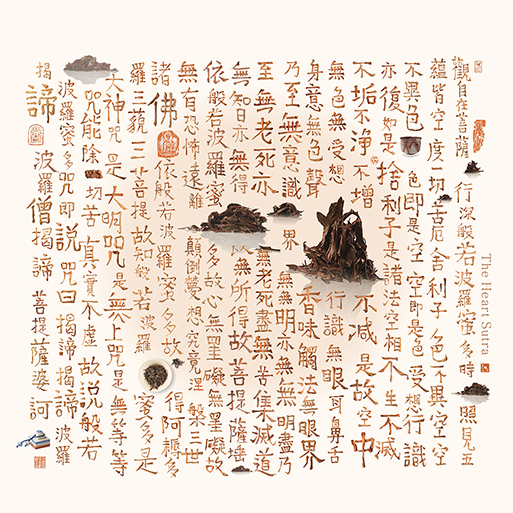 觀自在菩薩行深般若波羅蜜多時照見五
蘊皆空度一切苦厄舍利子色不異空空
不異色色即是空空即是色受想行識
亦復如是捨利子是諸法空相不生不滅
不垢不淨不增不減是故空中
無色無受想行識無眼耳鼻舌
身意無色聲香味觸法無眼界
乃至無意識界無無明亦無無明盡乃
至無老死亦無老死盡無苦集滅道
無知亦無得以無所得故菩提薩埵
依般若波羅蜜多故心無罣礙無罣礙故
無有恐怖遠離顛倒夢想究竟涅槃三世
諸佛依般若波羅蜜多故得阿耨多
羅三藐三菩提故知般若波羅蜜多是
大神咒是大明咒是無上咒是無等等
咒能除一切苦真實不虛故說般若
波羅蜜多咒即說咒曰揭諦揭諦波羅
揭諦波羅僧揭諦菩提薩婆訶
The Heart Sutra